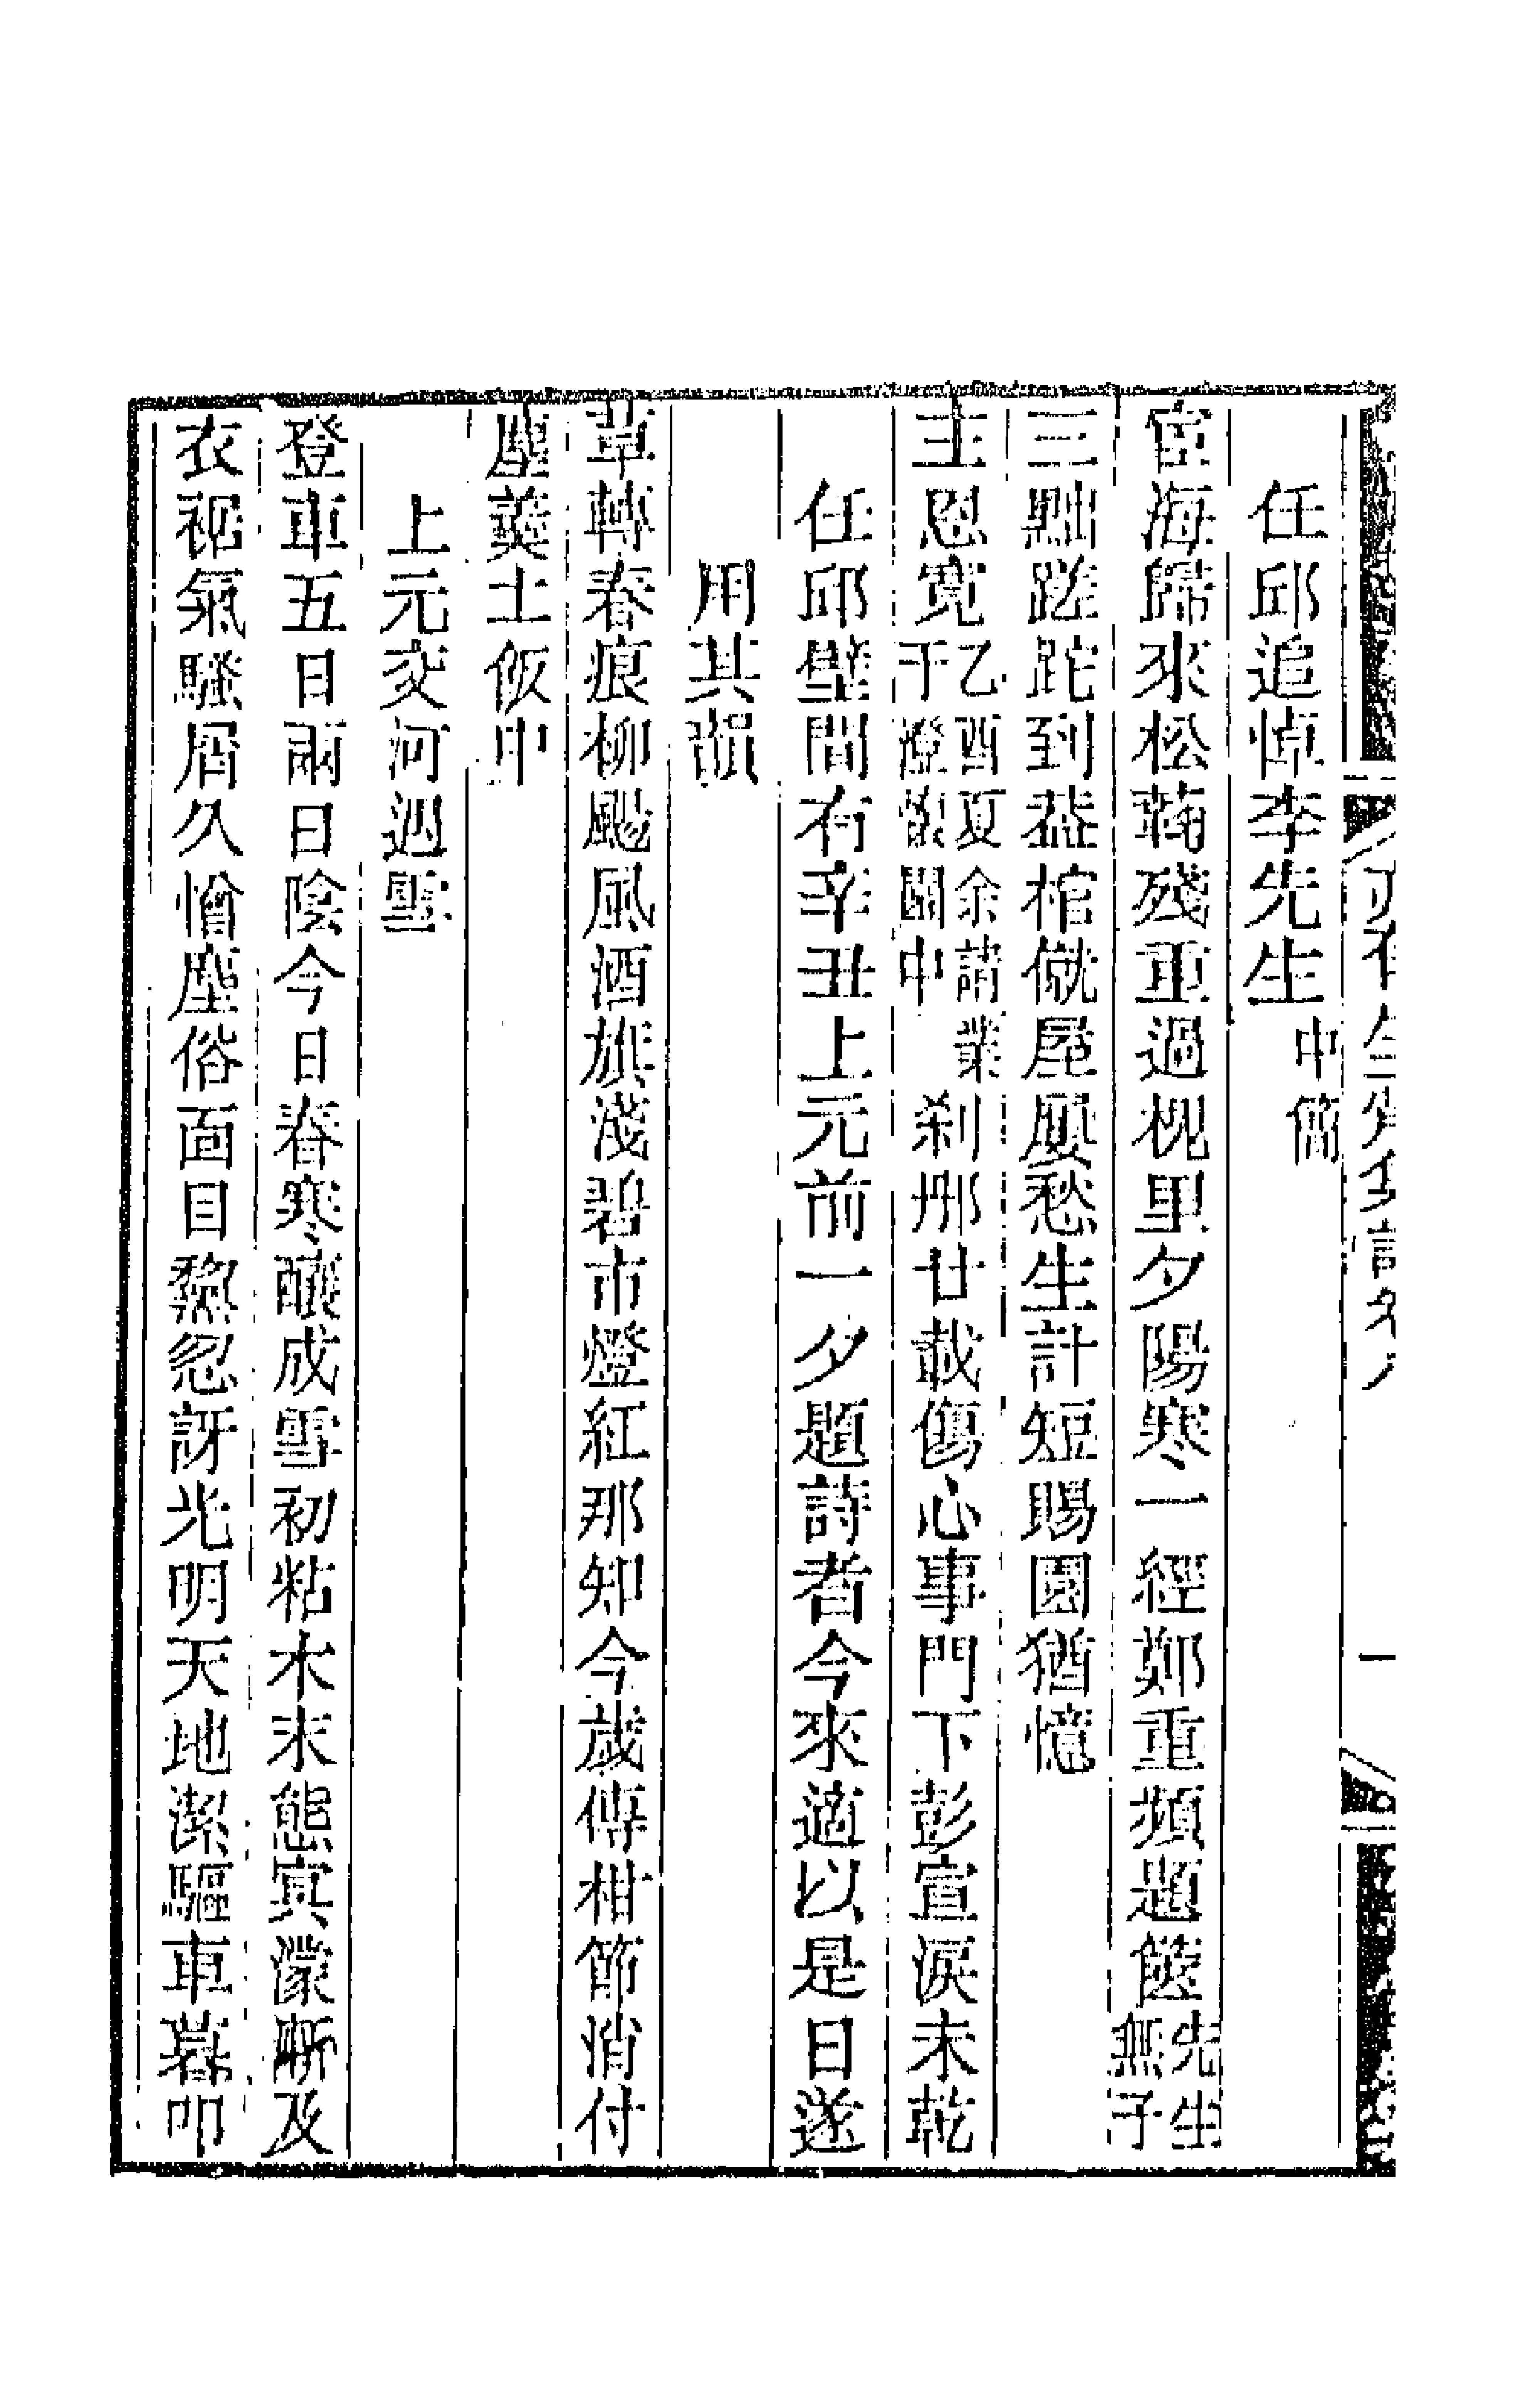 任邱追悼李先生中簡
宦海歸來松菊殘重過枧里夕陽寒一經鄭重頻題篋先生無子
三黜蹉跎到葢棺僦屋屢愁生計短賜園猶憶
主恩寛乙酉夏余請業于澄懷園中刹那廿載傷心事門下彭宣淚未乾
任邱壁間有辛丑上元前一夕題詩者今來適以是日遂
用其韻
草轉春痕柳颺風酒旂淺碧市燈紅那知今歲傳柑節消付
塵羮土飯中
上元交河遇雪
登車五日兩日陰今日春寒釀成雪初粘木末態寅濛漸及
衣裾氣騷屑久憎塵俗面目黧忽訝光明天地潔驅車暮叩